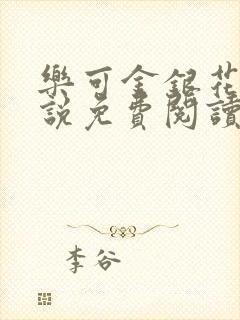 樂可金銀花
說免費閱讀
李谷